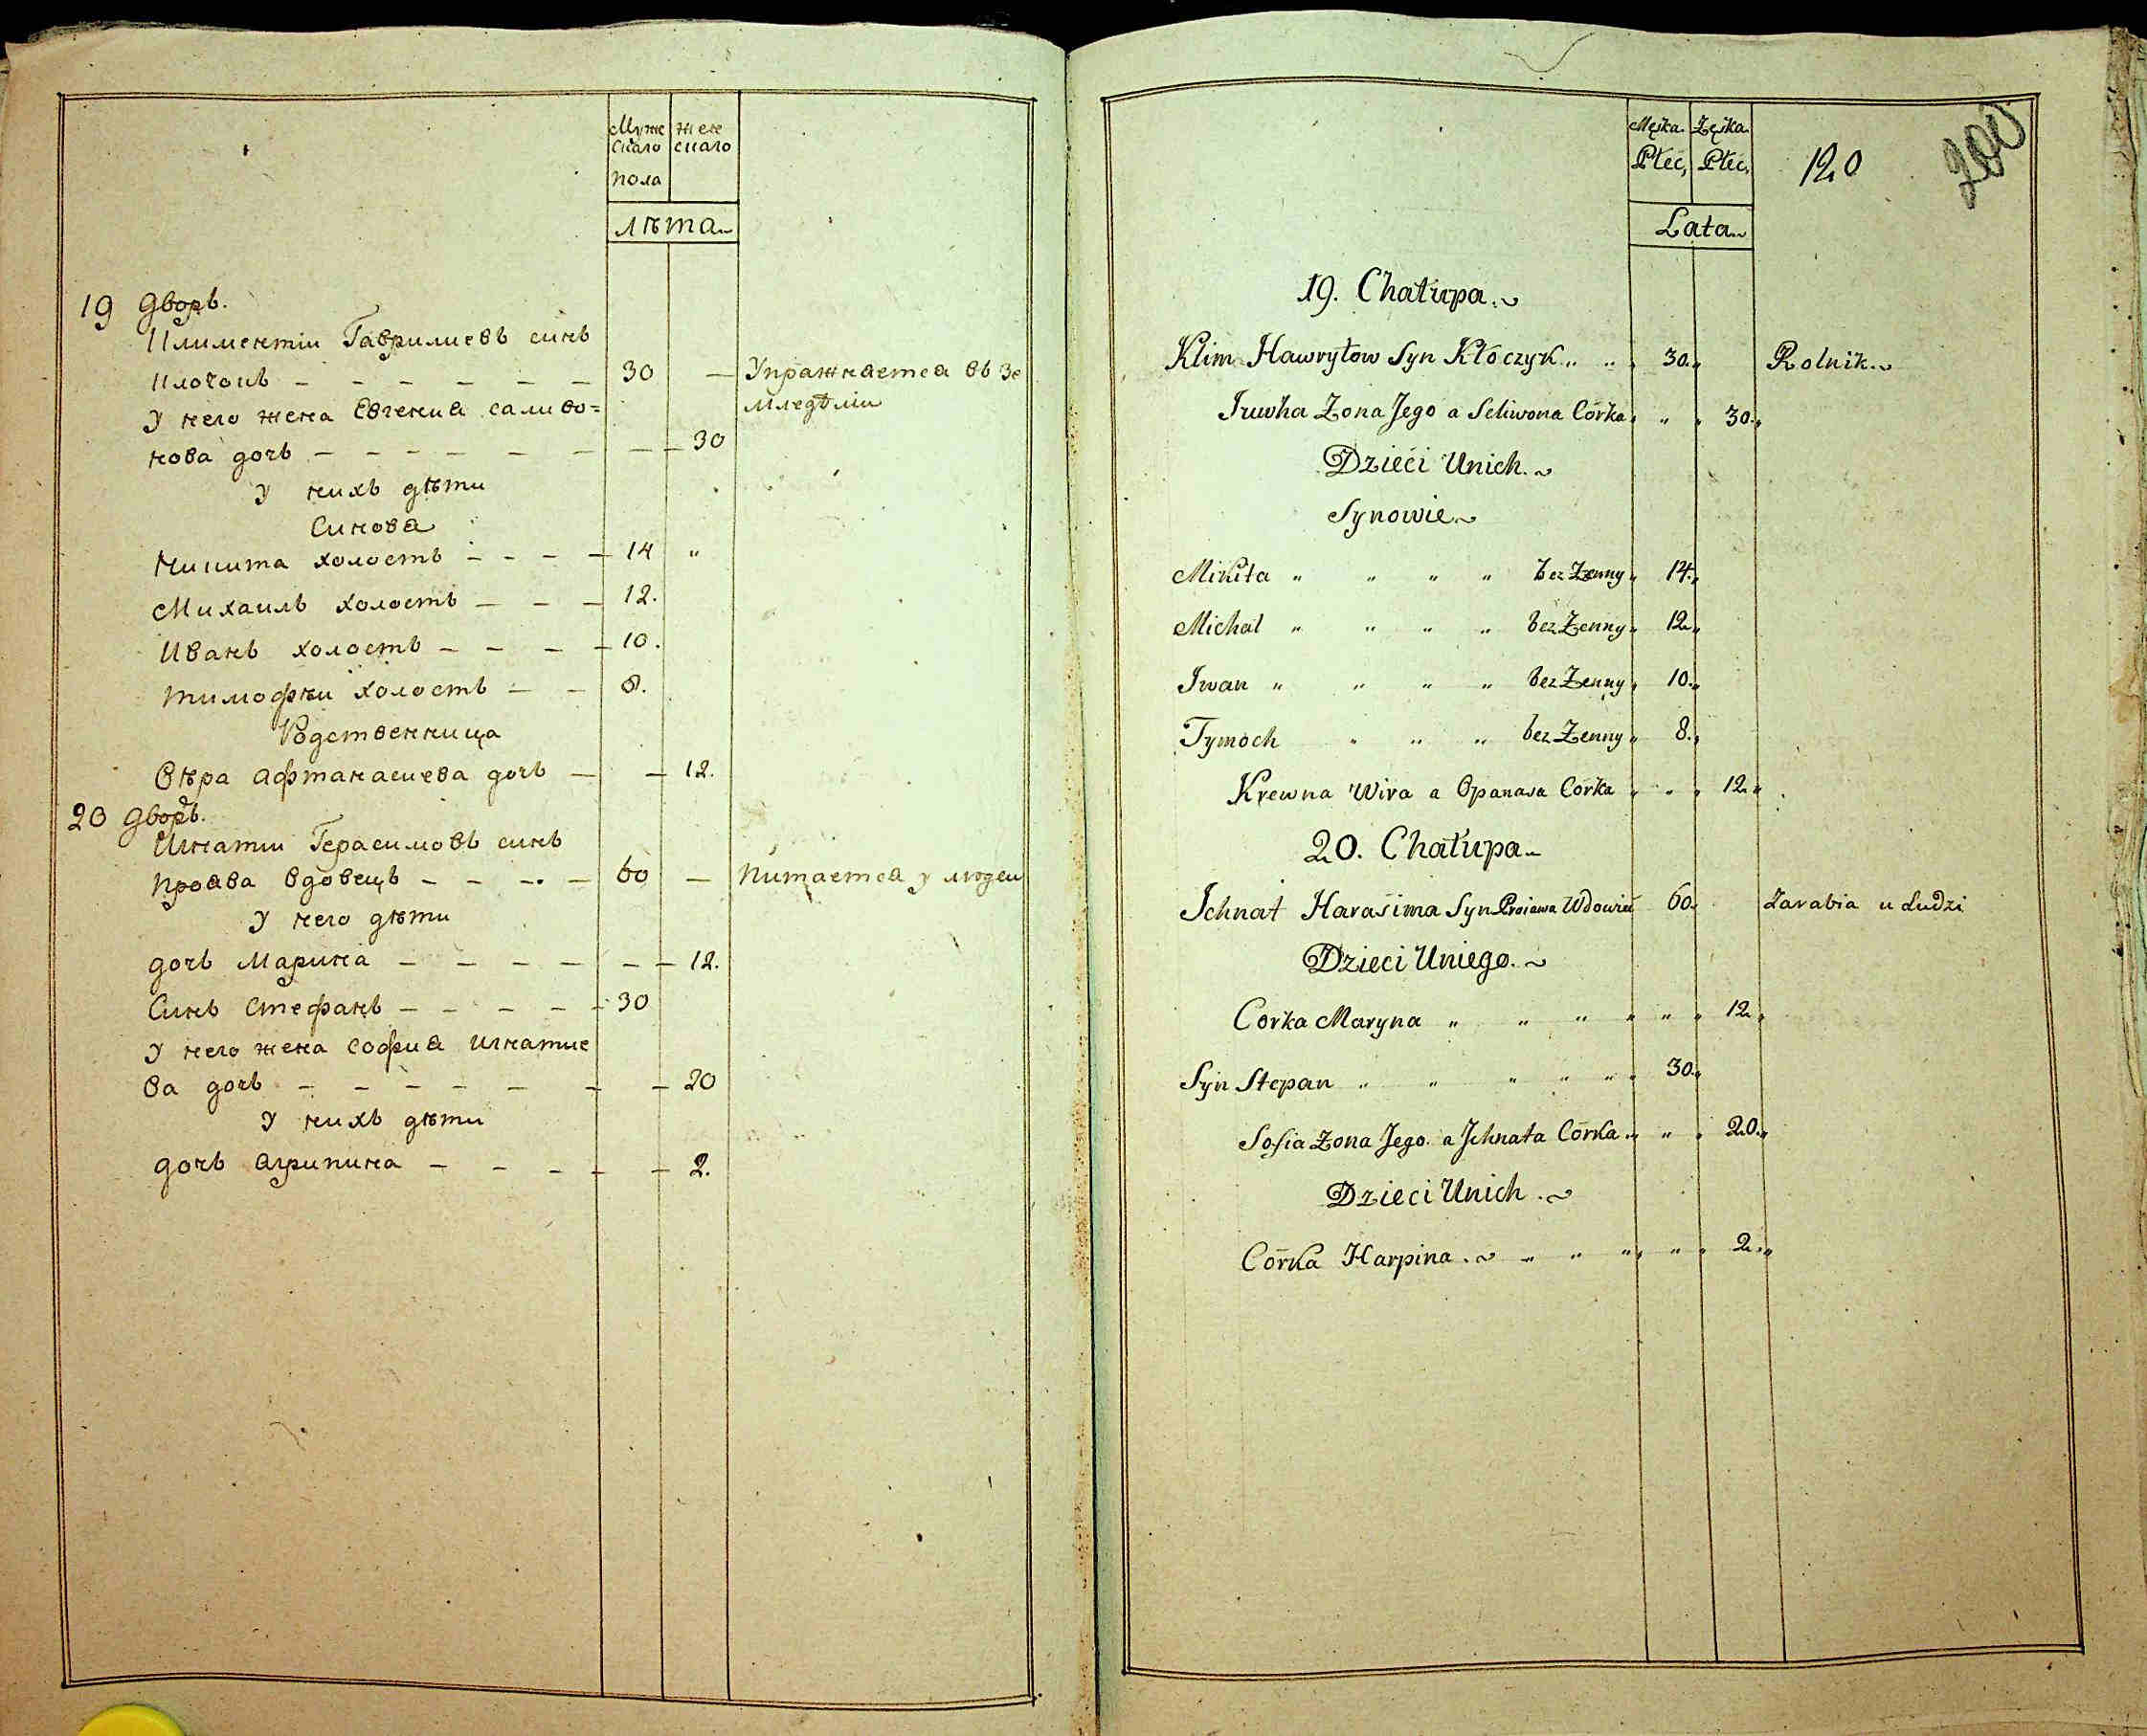 Муже
скаго
пола
жен
скаго
лѣта
19 дворъ.
Климентіи Гаврилиевъ синъ
Клочокъ — — — — — — 30 — Упражнаетса въ зе
мледѣліи
У него жена Евгениа саливо=
нова дочь — — — — — — — 30
У нихъ дѣти
Синова
Никита холостъ — — — — 14 "
Михаилъ холостъ — — — 12.
Иванъ холостъ — — — — 10.
Тимофѣи холостъ — — 8.
Родственница
Вѣра афтанасиева дочь — — 12.
20 дворъ.
Игнатіи Герасимовъ синъ
Проява вдовецъ — — — — 60 — Питаетса у людеи
У него дѣти
дочь Марина — — — — — — 12.
Синъ Стефанъ — — — — — 30
У него жена софиа игнатие
ва дочь — — — — — — — 20
У нихъ дѣти
дочь агрипина — — — — — 2.
Męska Płeć,
Żęska Płeć,
Lata
120
200
19. Chałupa
Klim Hawryłow Syn Kłoczyk „ „ 30. Rolnik
Juwha Zona Jego a Seliwona Córka „ „ 30.
Dzieci Unich.
Synowie
Mikita " " " " bez Zenny " 14.
Michal " " " " bez Zenny " 12.
Iwan " " " " bez Zenny " 10.
Tymoch " " " bez Zenny " 8.
Krewna Wira a Opanasa Córka " " " 12.
20. Chałupa
Ichnat Harasima Syn Proiawa Wdowieć 60. Zarabia u Ludzi
Dzieci Uniego.
Corka Maryna " " " " " " 12.
Syn Stepan " " " " " " 30.
Sofia Zona Jego a Ichnata Córka " " " 20.
Dzieci Unich.
Córka Harpina. " " " " " 2.